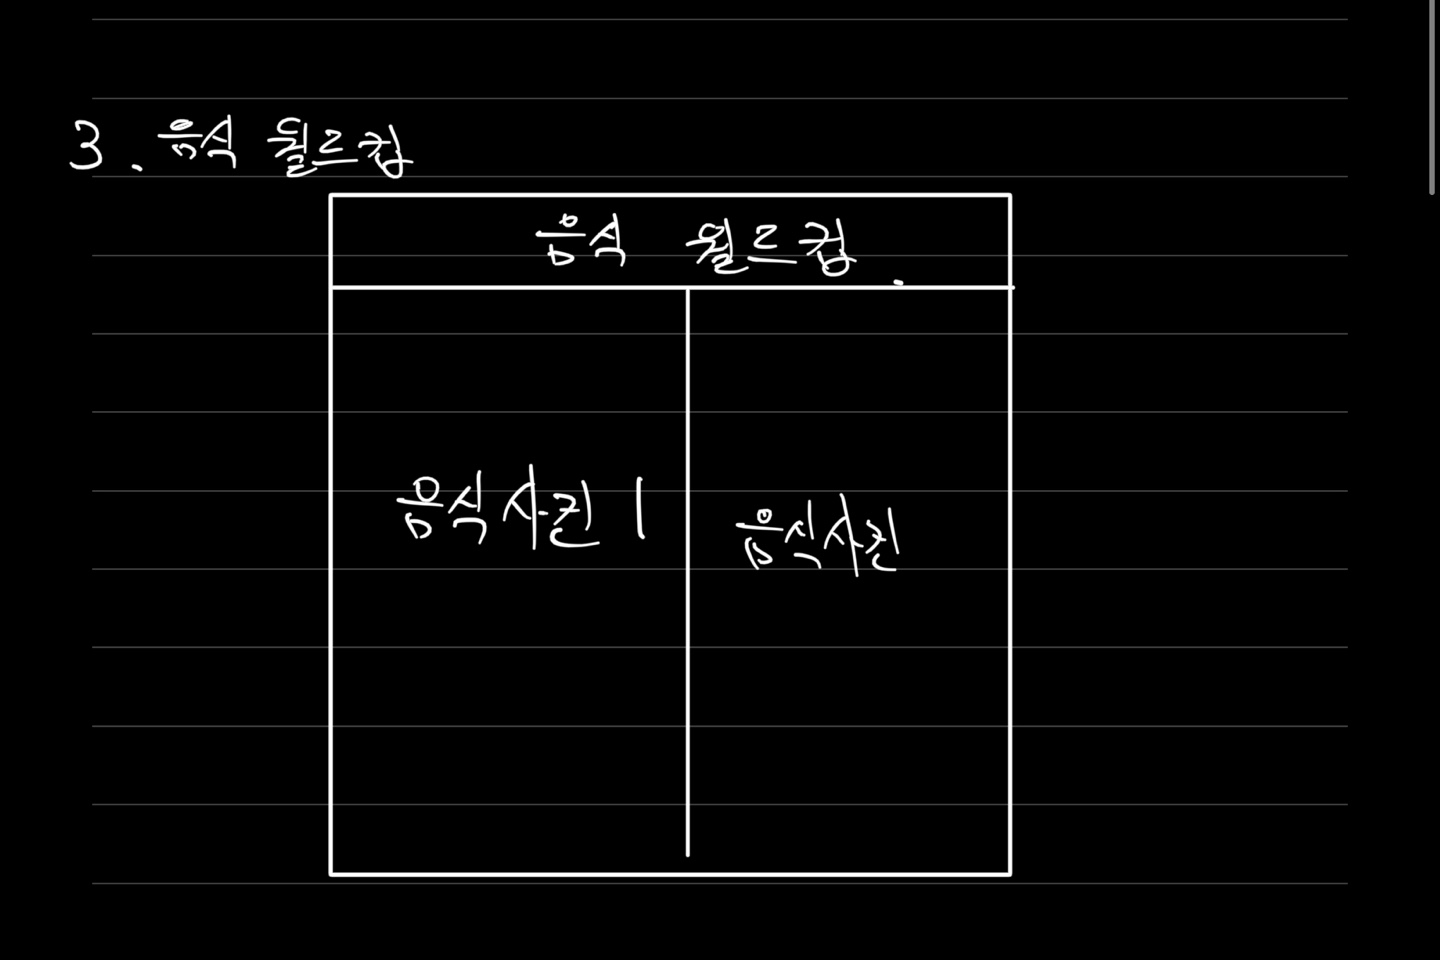 3. 음식 월드컵
음식 월드컵
음식사진 1
음식사진